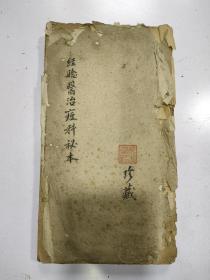 经驗醫治痘科秘本
珍藏